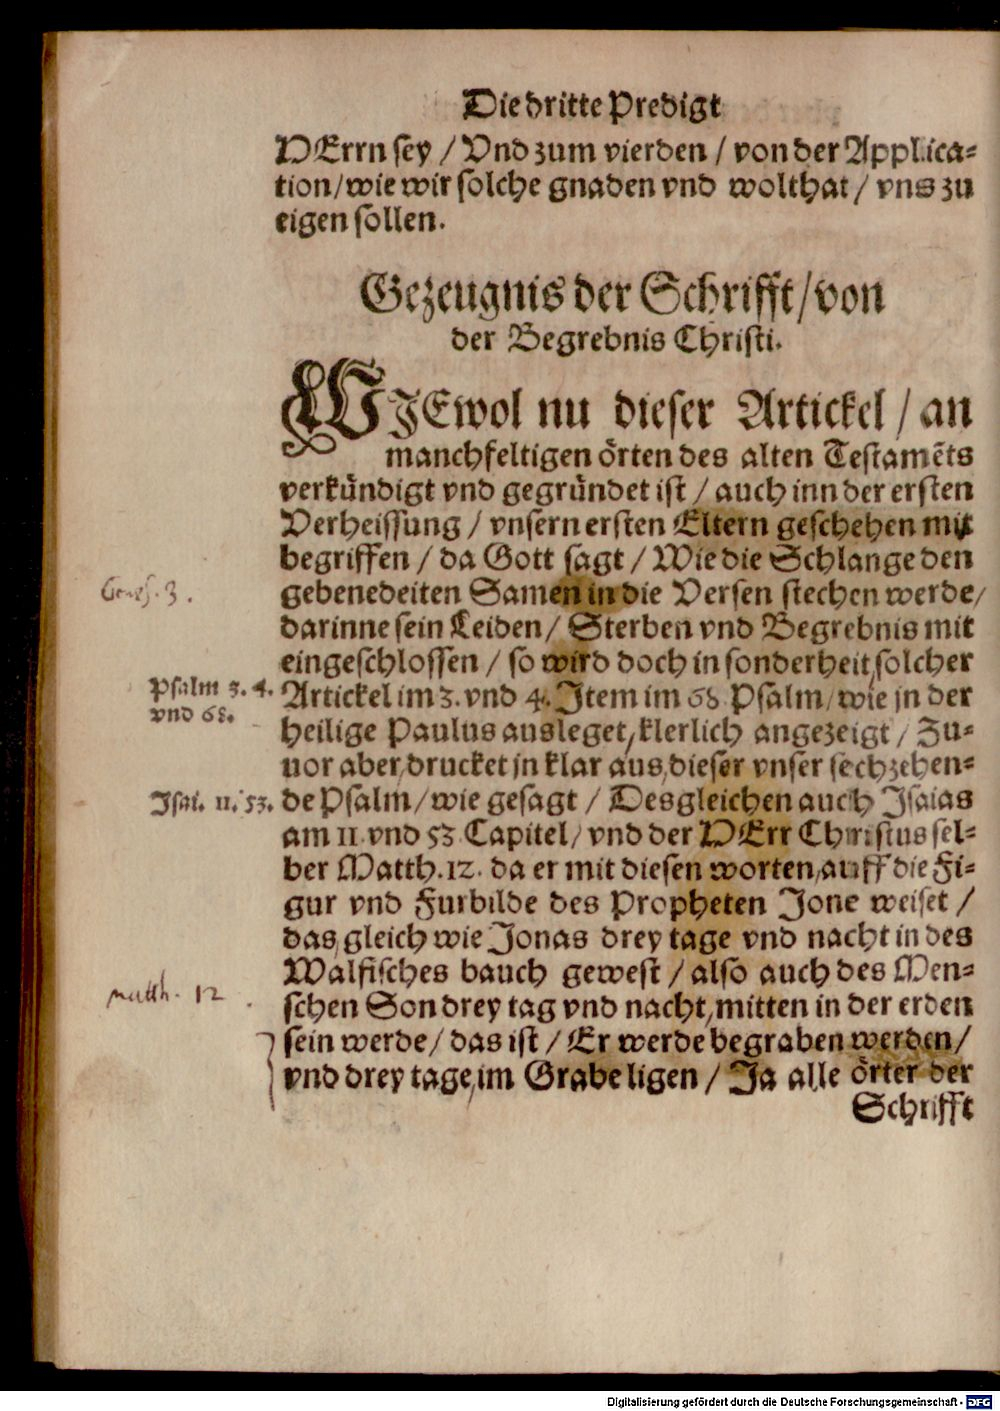 Die dritte Predigt
HErrn sey / Vnd zum vierden / von der Applica-
tion / wie wir solche gnaden vnd wolthat / vns zu
eigen sollen.
Gezeugnis der Schrifft / von
der Begrebnis Christi.
WIEwol nu dieser Artickel / an
manchfeltigen örten des alten Testamẽts
verkündigt vnd gegründet ist / auch inn der ersten
Verheissung / vnsern ersten Eltern geschehen mit
begriffen / da Gott sagt / Wie die Schlange den
Genes. 3.
gebenedeiten Samen in die Versen stechen werde /
darinne sein Leiden / Sterben vnd Begrebnis mit
eingeschlossen / so wird doch in sonderheit, solcher
Psalm 3. 4.
vnd 68.
Artickel im 3. vnd 4. Item im 68 Psalm / wie jn der
heilige Paulus ausleget, klerlich angezeigt / Zu-
uor aber, drucket jn klar aus, dieser vnser sechzehen-
Isai. 11. 53.
de Psalm / wie gesagt / Desgleichen auch Isaias
am 11. vnd 53 Capitel / vnd der HErr Christus sel-
ber Matth. 12. da er mit diesen worten, auff die Fi-
gur vnd Furbilde des Propheten Jone weiset /
das, gleich wie Jonas drey tage vnd nacht in des
Walfisches bauch gewest / also auch des Men-
Matth. 12.
schen Son drey tag vnd nacht, mitten in der erden
sein werde / das ist / Er werde begraben werden /
vnd drey tage, im Grabe ligen / Ja alle örter der
Schrifft
Digitalisierung gefördert durch die Deutsche Forschungsgemeinschaft - DFG